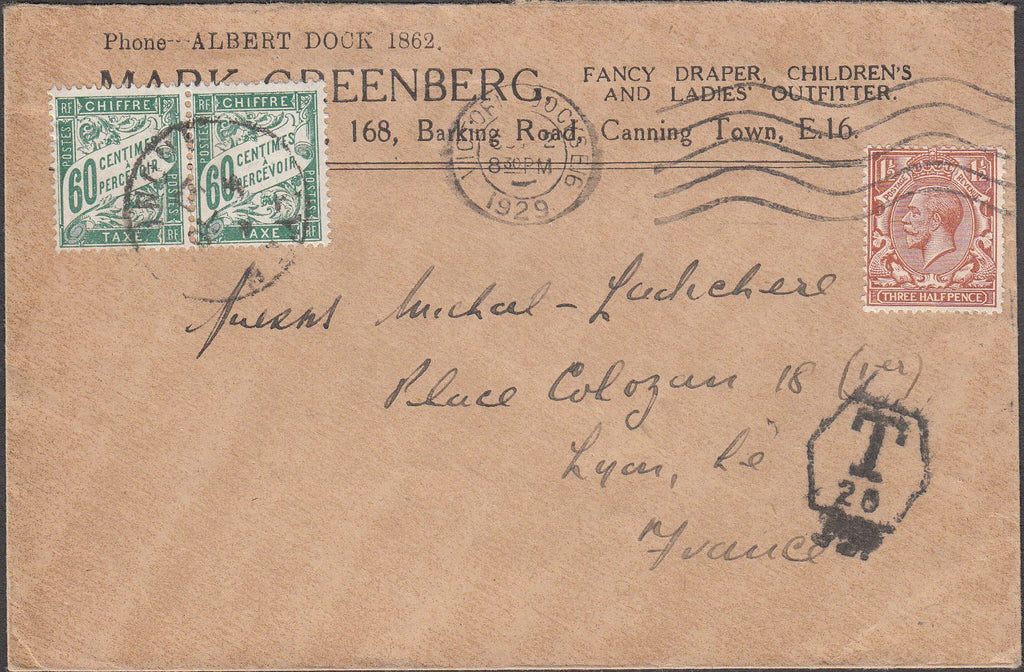 Phone-- ALBERT DOCK 1862.
MARK GREENBERG,
FANCY DRAPER, CHILDREN'S
AND LADIES' OUTFITTER.
168, Barking Road, Canning Town, E.16.
RF CHIFFRE
POSTES
60 CENTIMES
PERCE
POSTES
TAXE
CHIFFRE RF
POSTES
60 CENTIMES
À
PERCEVOIR
POSTES
TAXE RF
VICTORIA DOCKS E16
8 30 PM
1929
1½ 1½
POSTAGE REVENUE
THREE HALFPENCE
Place Colozan 18 (1er)
Lyon,
France
T
20